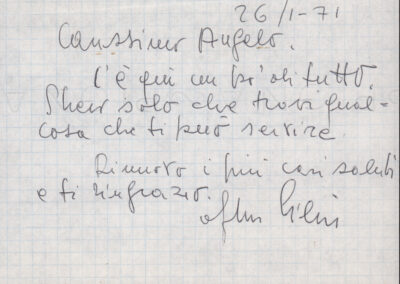 26/1-71
Carissimo Angelo.
C'è qui un po' di tutto.
Spero solo che trovi qual=
cosa che ti può servire.
Rinnovo i più cari saluti
e ti ringrazio.